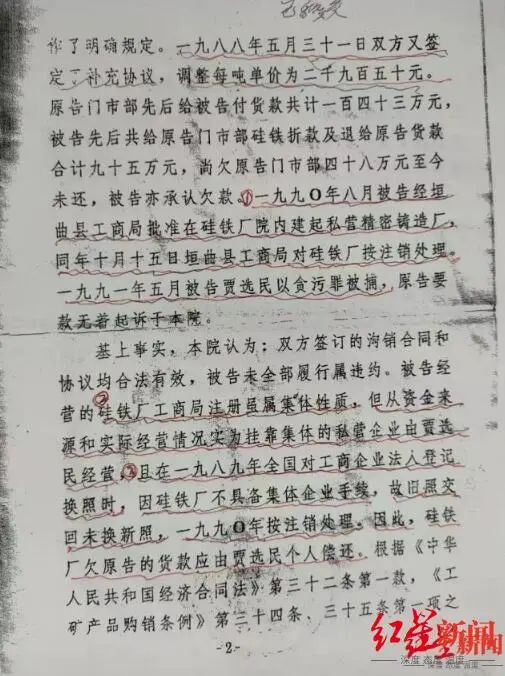 作了明确规定。一九八八年五月三十一日双方又签
定了补充协议，调整每吨单价为二千九百五十元。
原告门市部先后给被告付货款共计一百四十三万元，
被告先后共给原告门市部硅铁折款及退给原告货款
合计九十五万元，尚欠原告门市部四十八万元至今
未还，被告亦承认欠款。①一九九〇年八月被告经垣
曲县工商局批准在硅铁厂院内建起私营精密铸造厂，
同年十月十五日垣曲县工商局对硅铁厂按注销处理。
一九九一年五月被告贾选民以贪污罪被捕，原告要
款无着起诉于本院。
基上事实，本院认为：双方签订的沟销合同和
协议均合法有效，被告未全部履行属违约。被告经
营的②硅铁厂工商局注册虽属集体性质，但从资金来
源和实际经营情况实为挂靠集体的私营企业由贾选
民经营，③且在一九八九年全国对工商企业法人登记
换照时，因硅铁厂不具备集体企业手续，故旧照交
回未换新照，一九九〇年按注销处理。因此，硅铁
厂欠原告的货款应由贾选民个人偿还。根据《中华
人民共和国经济合同法》第三十二条第一款，《工
矿产品购销条例》第三十四条、三十五条第一项之
-2-
红星新闻
深度 态度 温度